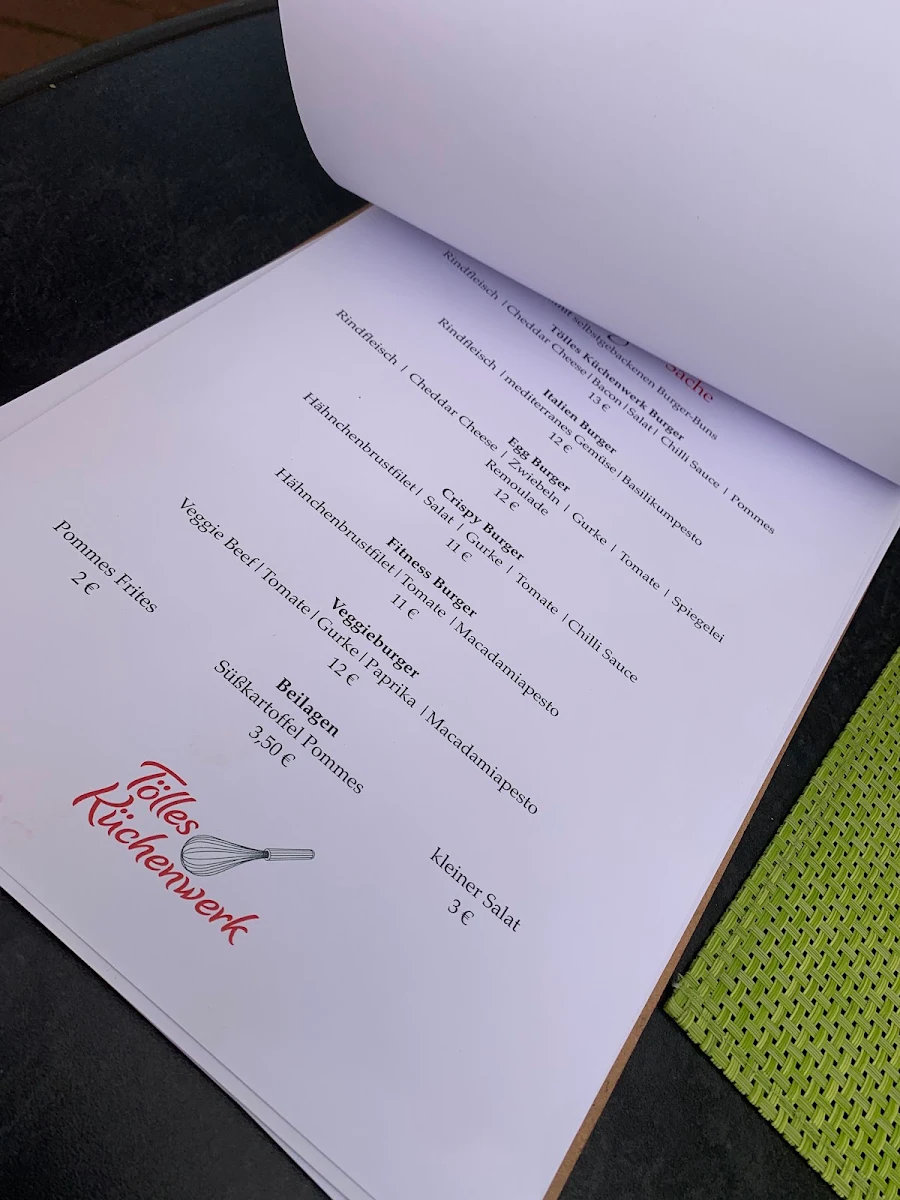 Sache
mit selbstgebackenen Burger-Buns
Tölles Küchenwerk Burger
Rindfleisch | Cheddar Cheese | Bacon | Salat | Chilli Sauce | Pommes
13 €
Italien Burger
Rindfleisch | mediterranes Gemüse | Basilikumpesto
12 €
Egg Burger
Rindfleisch | Cheddar Cheese | Zwiebeln | Gurke | Tomate | Spiegelei
Remoulade
12 €
Crispy Burger
Hähnchenbrustfilet | Salat | Gurke | Tomate | Chilli Sauce
11 €
Fitness Burger
Hähnchenbrustfilet | Tomate | Macadamiapesto
11 €
Veggieburger
Veggie Beef | Tomate | Gurke | Paprika | Macadamiapesto
12 €
Beilagen
Pommes Frites
2 €
Süßkartoffel Pommes
3,50 €
kleiner Salat
3 €
Tölles
Küchenwerk